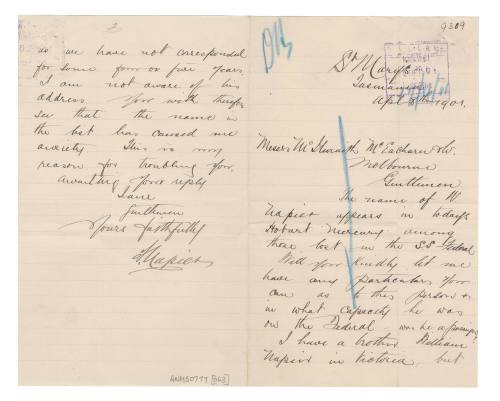 9309
St Marys
Tasmania
Apl 8th 1901.
Messrs McIlwraith McEacharn & Co.
Melbourne
Gentlemen
The name of W
Napier appears in todays
Hobart Mercury among
those lost in the S.S. Federal
Will you kindly let me
have any particulars you
can as to this person &
in what capacity he was
on the Federal - was he a passenger
I have a brother William
Napier in Victoria, but
2
as we have not corresponded
for some four or five years,
I am not aware of his
address. You will therefore
see that the name in
the list has caused me
anxiety. This is my
reason for troubling you.
Awaiting your reply
I am
Gentlemen
Yours faithfully
Napier
ANMS0777[363]